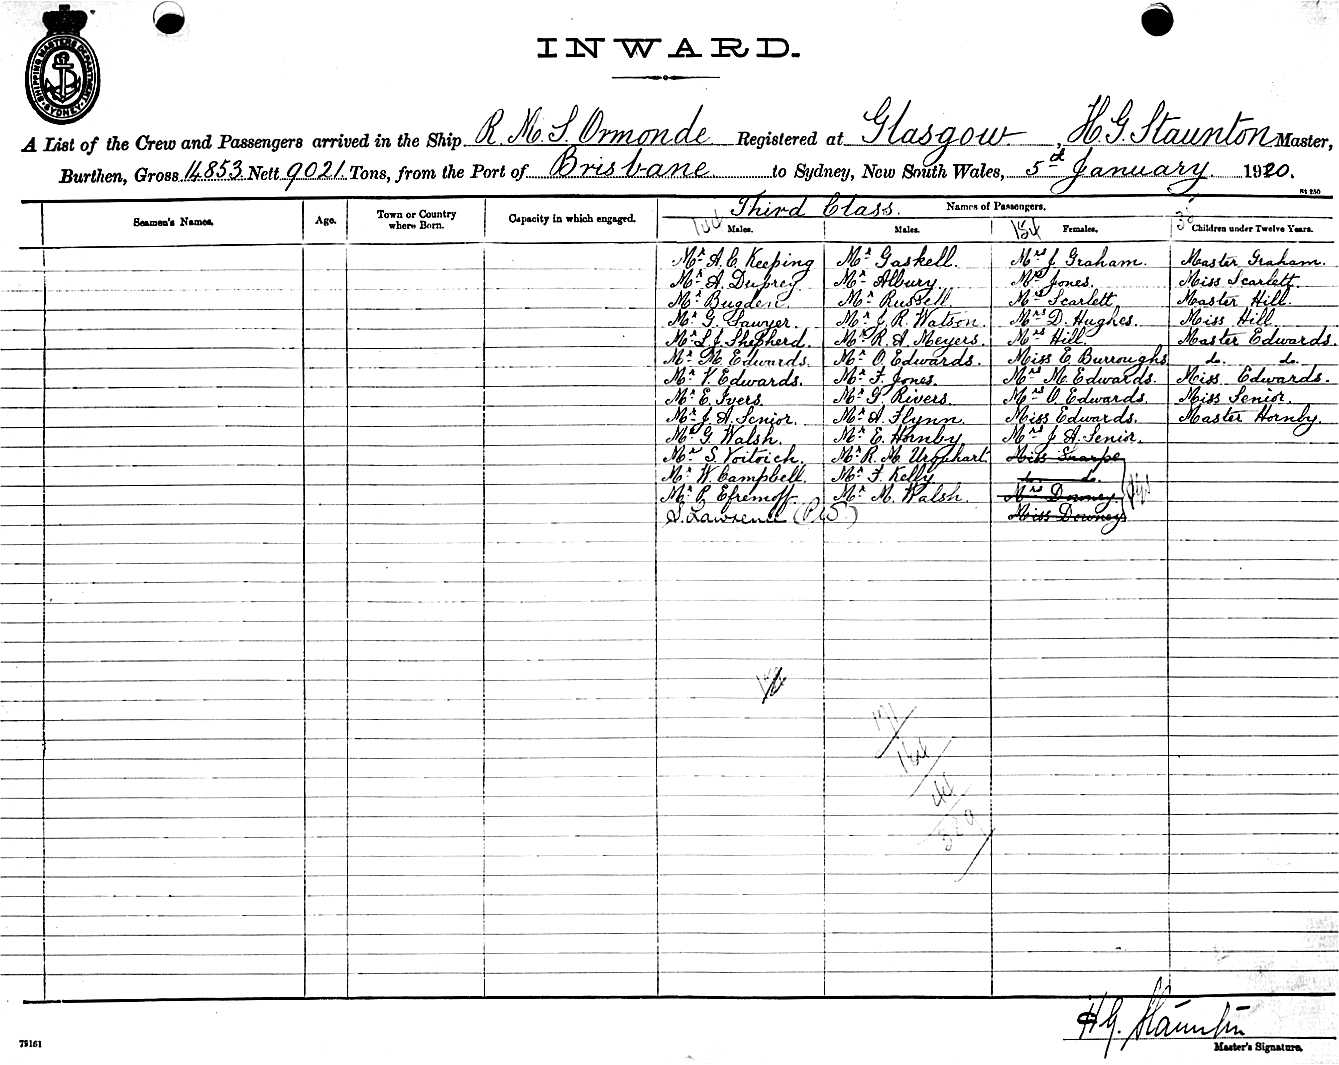 SHIPPING MASTERS DEPARTMENT
SYDNEY
INWARD.
A List of the Crew and Passengers arrived in the Ship R. M. S. Ormonde Registered at Glasgow, H. G. Staunton Master,
Burthen, Gross 14853 Nett 9021 Tons, from the Port of Brisbane to Sydney, New South Wales, 5th January 1920.
Seamen's Names. Age. Town or Country where Born. Capacity in which engaged. Third Class. Names of Passengers.
Males. Males. Females. Children under Twelve Years.
Mr A. C. Keeping Mr Gaskell. Mrs J. Graham. Master Graham.
Mr A. Duprey. Mr Albury. Mrs Jones. Miss Scarlett.
Mr Bugden. Mr Russell. Mrs Scarlett. Master Hill.
Mr G. Sawyer. Mr J. R. Watson. Mrs D. Hughes. Miss Hill.
Mr L. J. Shepherd. Mr R. A. Meyers. Mrs Hill. Master Edwards.
Mr M. Edwards. Mr O. Edwards. Miss E. Burroughs do. do.
Mr V. Edwards. Mr F. Jones. Mrs M. Edwards. Miss Edwards.
Mr E. Ivers. Mr G. Rivers. Mrs O. Edwards. Miss Senior.
Mr J. A. Senior. Mr A. Flynn. Miss Edwards. Master Hornby.
Mr G. Walsh. Mr E. Hornby. Mrs J. A. Senior.
Mr S. Voitoich. Mr R. M. Urquhart. Miss Sharpe
Mr W. Campbell. Mr F. Kelly do. do.
Mr P. Efremoff. Mr M. Walsh. Mrs Downey.
S. Lawrence Miss Downey
H. G. Staunton
Master's Signature.
73161